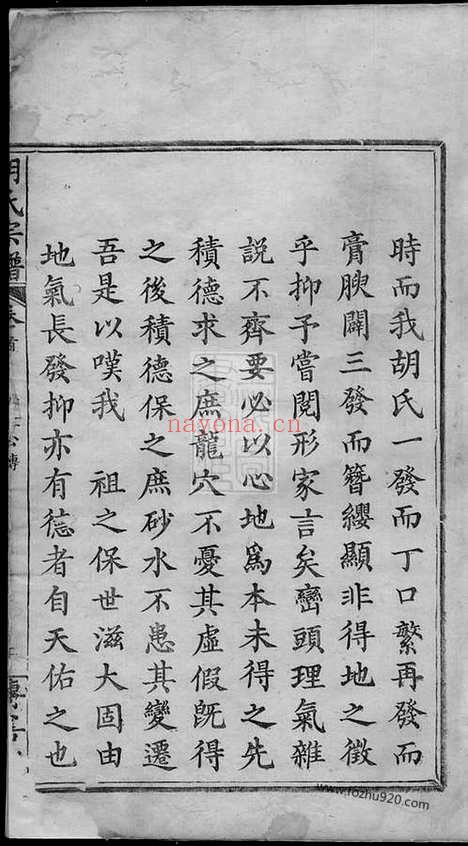 時而我胡氏一發而丁口繁再發而
膏腴闢三發而簪纓顯非得地之徵
乎抑予嘗閱形家言矣巒頭理氣雜
說不齊要必以心地為本未得之先
積德求之庶龍穴不憂其虛假既得
之後積德保之庶砂水不患其變遷
吾是以嘆我 祖之保世滋大固由
地氣長發抑亦有德者自天佑之也
胡氏宗譜 卷首
nayona.cn
www.fozhu920.com